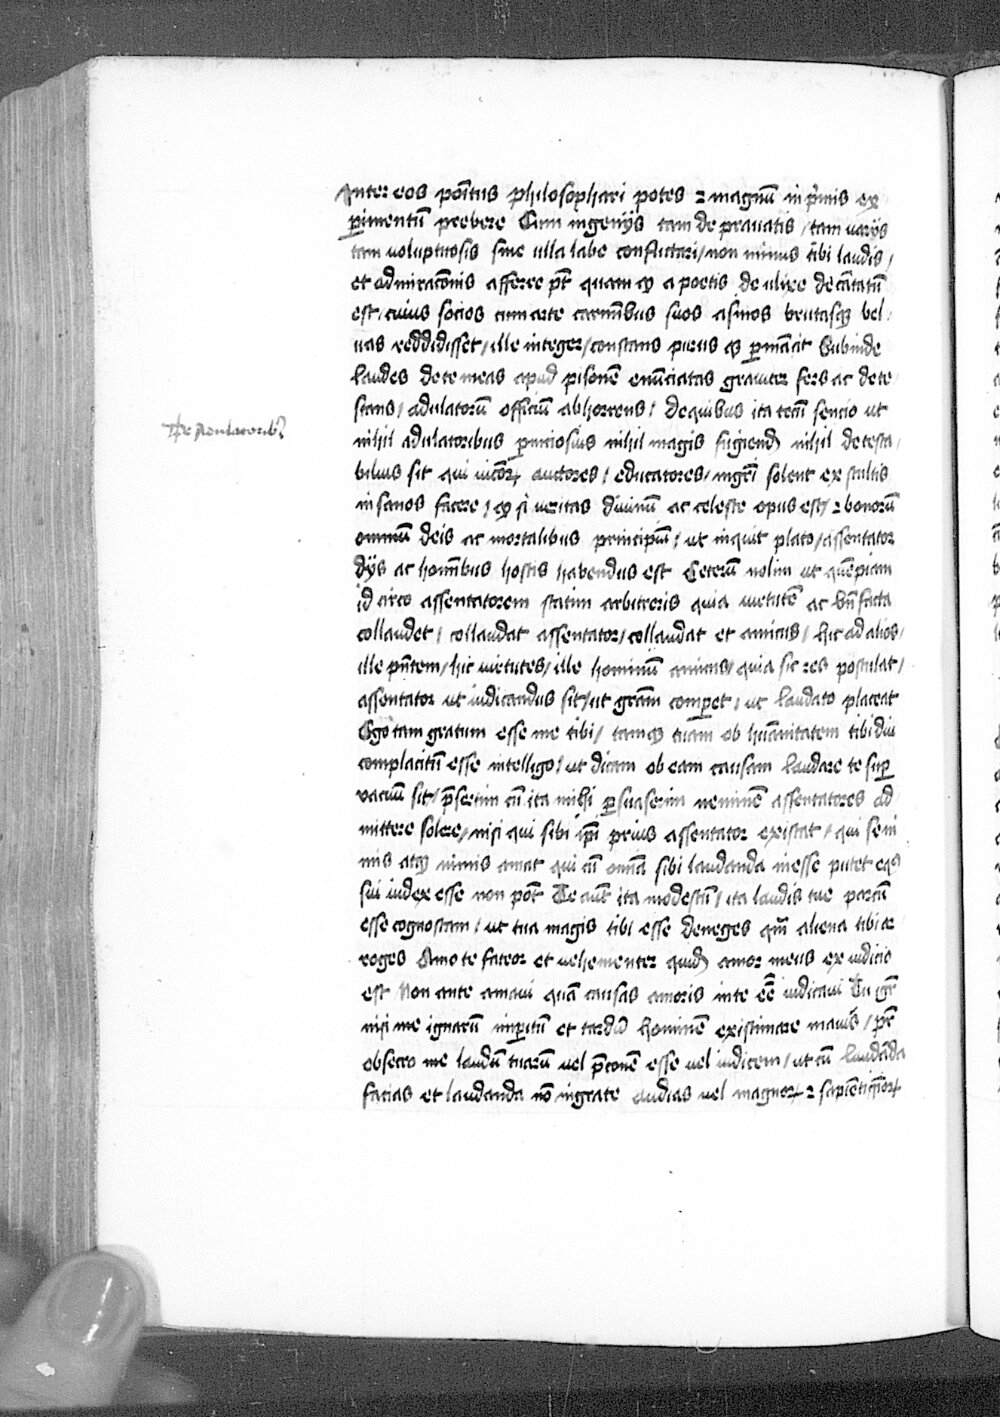 Inter eos po͞itus philosophari potes ⁊ magnū in p͛mis ex
perimentū prebere Cum ingenijs tam de prauatis / tam varijs
tam voluptuosis sine ulla labe conflictari / non minus tibi laudis /
et admiracōnis afferre pōt quam q̄ a poetis de ulixe decātatū
est / cuius socios cum arte carminibus suos asinos brutasq3 bel
uas reddidisset / ille integer / constans purus q3 permāsit Subinde
laudes de te meas apud pisonē enūciatas grauiter fers ac dete
stans / adulatorū officiū abhorrens / de quibus ita tecū sencio ut
De Adulatorib3
nihil adulatoribus perniciosius nihil magis fugiend nihil detesta
bilius sit qui vicior auctores / educatores / ingeri solent ex stultis
insanos facere / q̄ si veritas diuinū ac celeste opus est / ⁊ bonorū
omniū deis ac mortalibus principiū / ut inquit plato / assentator
dijs ac hominibus hostis habendus est Ceterū nolim ut quēpiam
id circo assentatorem statim arbitreris quia virtutē ac bn̄facta
collaudet / collaudat assentator / collaudat et amicus / hic ad alios /
ille pn̄tem / hic virtutes / ille hominū amicus / quia sic res postulat /
assentator ut iudicandus sit / ut grām comperet / ut laudato placeat
Ego tam gratum esse me tibi / tamq3 tuam ob hūanitatem tibi diu
complacitū esse intelligo / ut dicam ob eam causam laudare te super
vacuū sit / p̄sertim cū ita mihi persuaserim neminē assentatores ad
mittere solere / nisi qui sibi ip̄i prius assentator existat / qui se ni
mis atq3 nimis amat qui cū om̄ia sibi laudanda inesse putet eq9
sui iudex esse non pōt Te aūt ita modestū / ita laudis tue parcū
esse cognoscam / ut tua magis tibi esse deneges qm̄ aliena tibi ar
roges Amo te fateor et vehementer quid amor meus ex iudicio
est Non ante amaui quā causas amoris in te eē iudicaui Tu igr̄
nisi me ignarū imperitū et tardū hominē existimare mauis / pr̄
obsecro me laudū tuarū vel p̄conē esse vel iudicem / ut cū laudāda
facias et laudanda nō ingrate audias vel magnor ⁊ sapiētissior